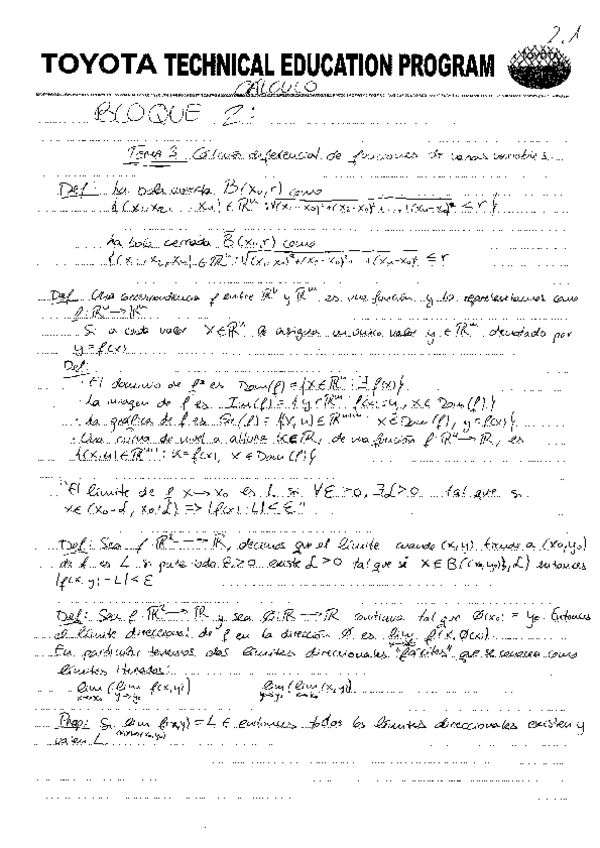 2.1
TOYOTA TECHNICAL EDUCATION PROGRAM
CÁLCULO
BLOQUE 2:
TEMA 3 Cálculo diferencial de funciones de varias variables.
Def: La bola abierta B(x₀,r) como
La bola cerrada B̄(x₀,r) como
Def Una correspondencia f entre ℝⁿ y ℝᵐ es una función y lo representamos como
f: ℝⁿ→ℝᵐ
Si a cada valor x∈ℝⁿ se asigna un único valor y∈ℝᵐ denotado por
y=f(x)
Def:
· El dominio de f es Dom(f)={x∈ℝⁿ: ∃ f(x)}
· La imagen de f es Im(f)={y∈ℝᵐ: f(x)=y, x∈Dom(f)}
· La gráfica de f es x∈Dom(f), y=f(x)}
· Una curva de nivel a altura de una función f: ℝⁿ→ℝ, es
x∈Dom(f)}
"El límite de f x→x₀ es L si ∀ε>0, ∃ >0 tal que si
Def: Sea f: ℝ²→ℝ, decimos que el límite cuando (x,y) a (x₀,y₀)
de f es L si para todo ε>0 existe >0 tal que si entonces
|f(x,y)-L|<ε
Def: Sea f: ℝ²→ℝ y sea Ø: ℝ→ℝ continua tal que Ø(x₀)=y₀. Entonces
el límite direccional de f en la dirección Ø es lim f(x,Ø(x))
En particular tenemos dos límites direccionales que se conocen como
límites iterados:
lim (lim f(x,y)) lim (lim (x,y))
Prop: Si lim f(x,y)=L entonces todos los límites direccionales existen y
valen L